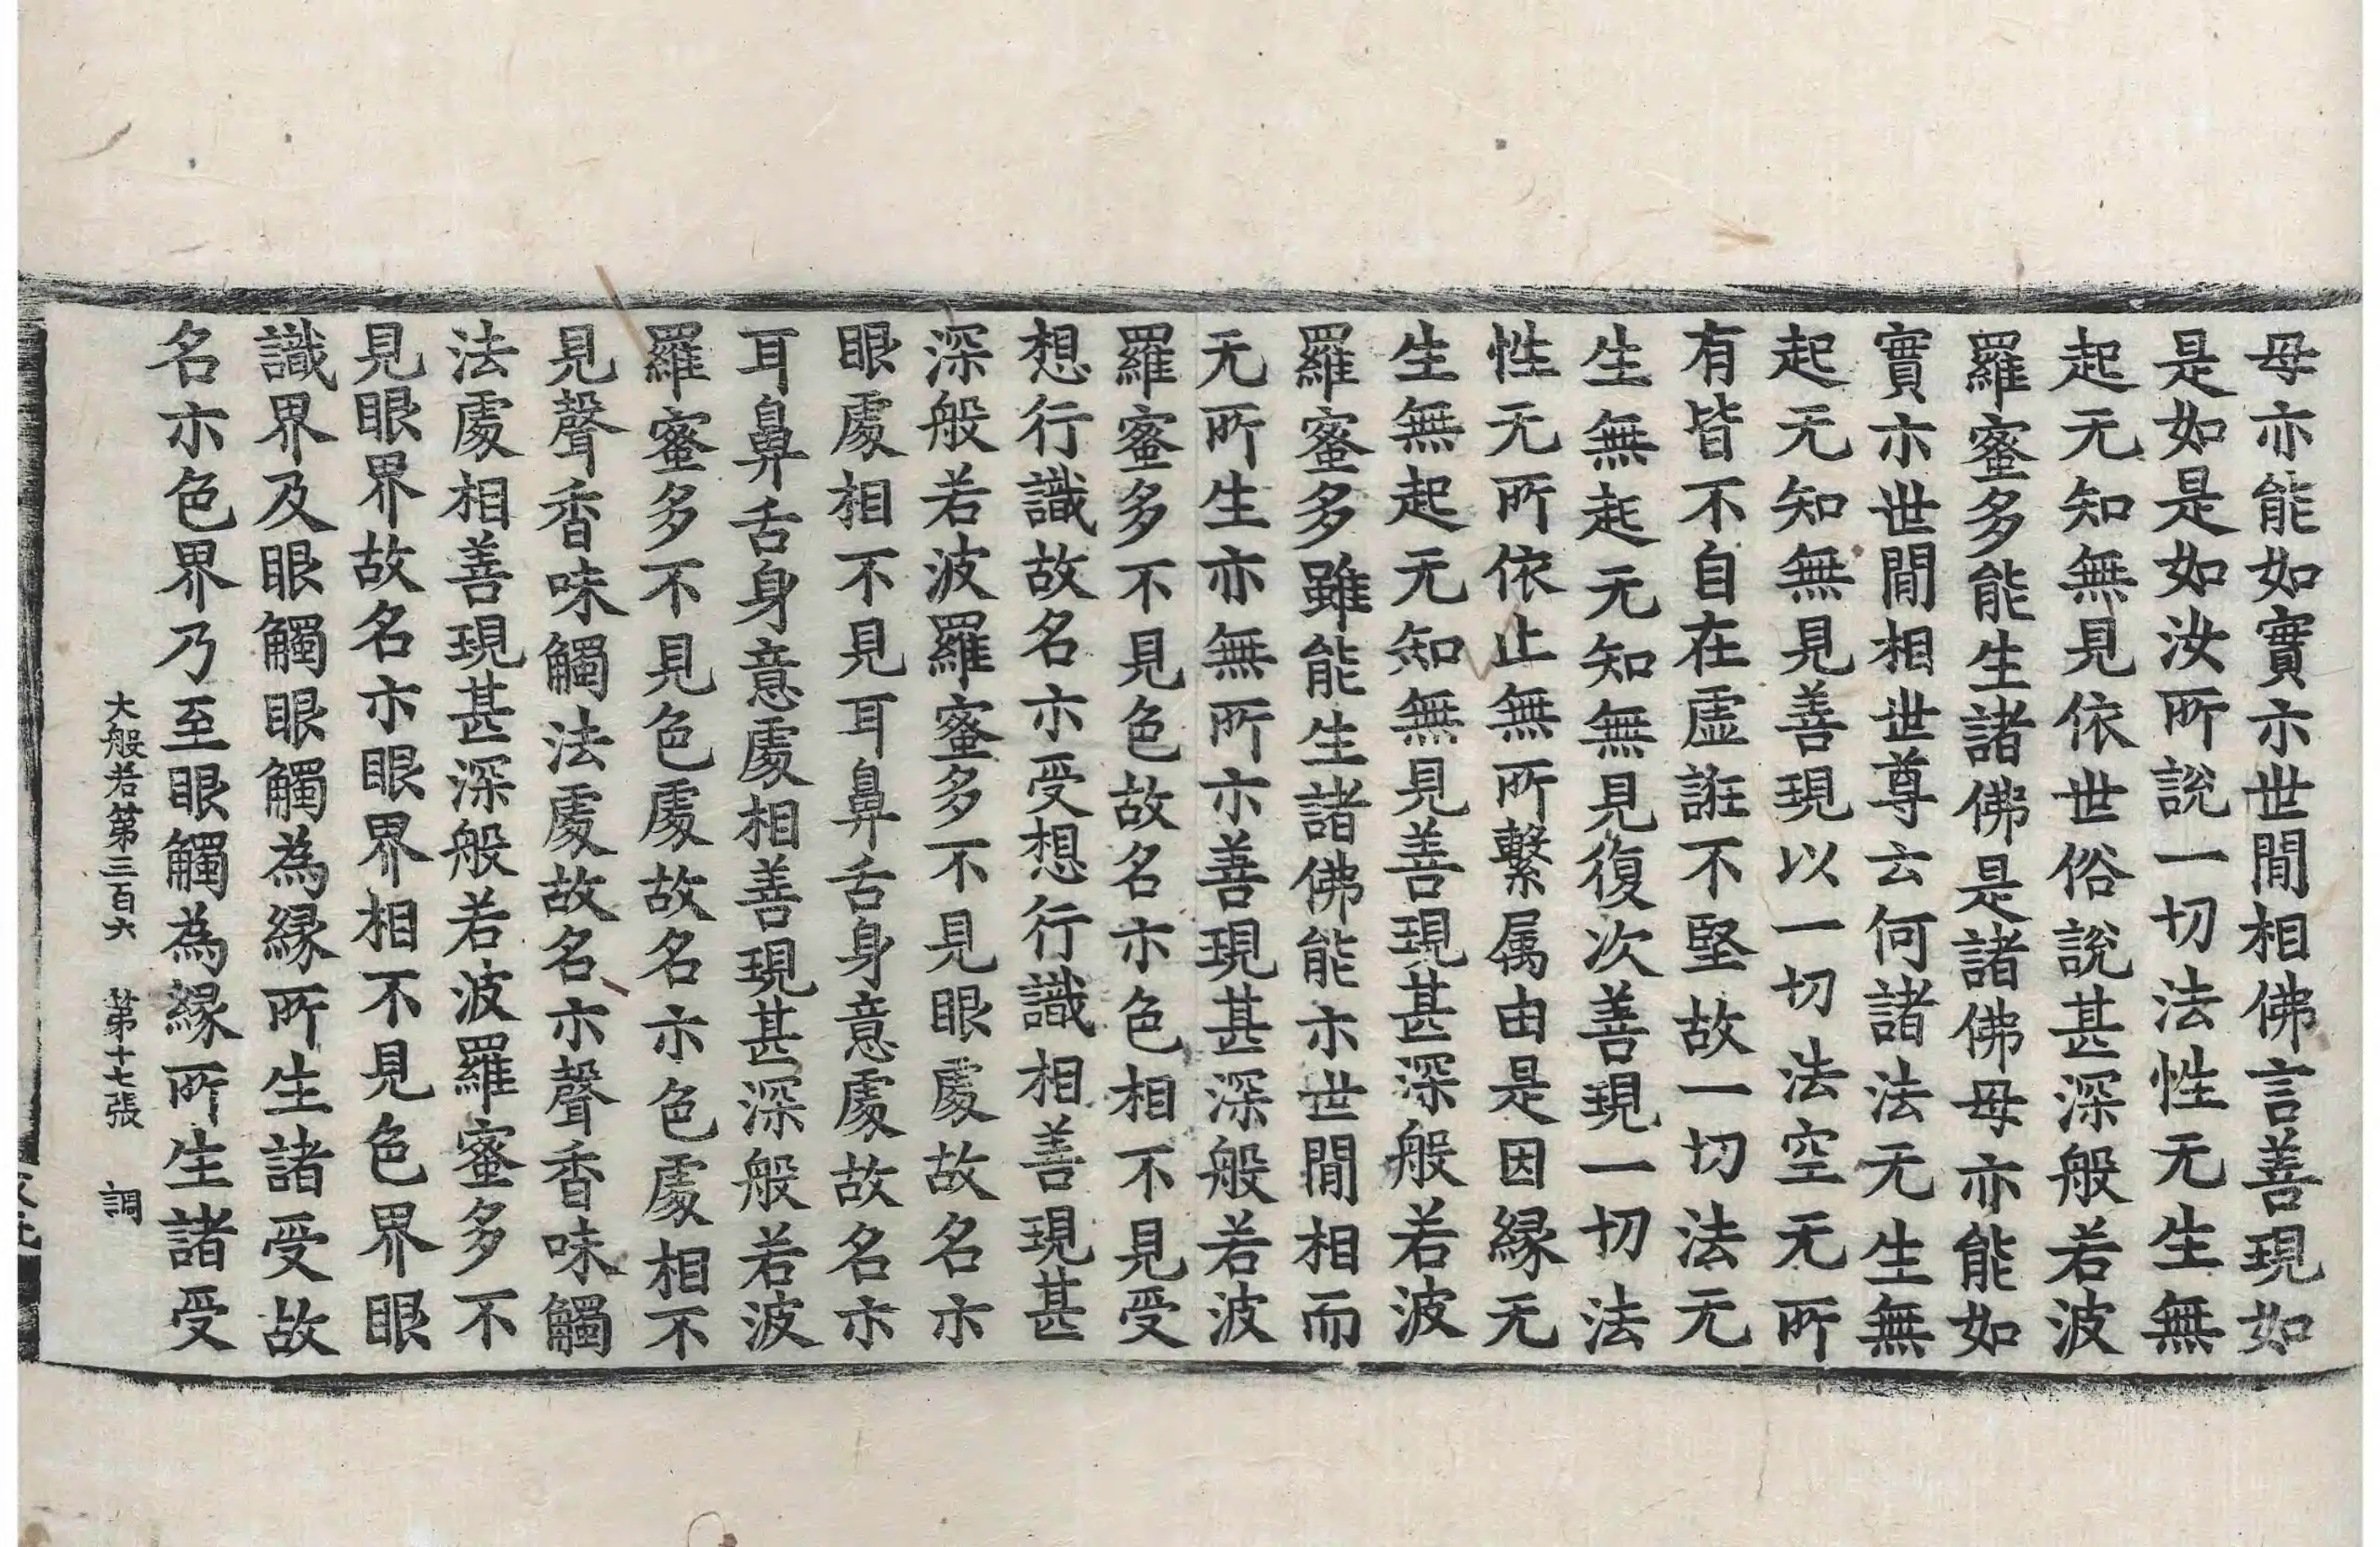 母亦能如實示世間相佛言善現如
是如是如汝所說一切法性无生無
起无知無見依世俗說甚深般若波
羅蜜多能生諸佛是諸佛母亦能如
實示世間相世尊云何諸法无生無
起无知無見善現以一切法空无所
有皆不自在虛誑不堅故一切法无
生無起无知無見復次善現一切法
性无所依止無所繫属由是因緣无
生無起无知無見善現甚深般若波
羅蜜多雖能生諸佛能示世間相而
无所生亦無所示善現甚深般若波
羅蜜多不見色故名示色相不見受
想行識故名示受想行識相善現甚
深般若波羅蜜多不見眼處故名示
眼處相不見耳鼻舌身意處故名示
耳鼻舌身意處相善現甚深般若波
羅蜜多不見色處故名示色處相不
見聲香味觸法處故名示聲香味觸
法處相善現甚深般若波羅蜜多不
見眼界故名示眼界相不見色界眼
識界及眼觸眼觸為緣所生諸受故
名示色界乃至眼觸為緣所生諸受
大般若第三百六 第十七張 調